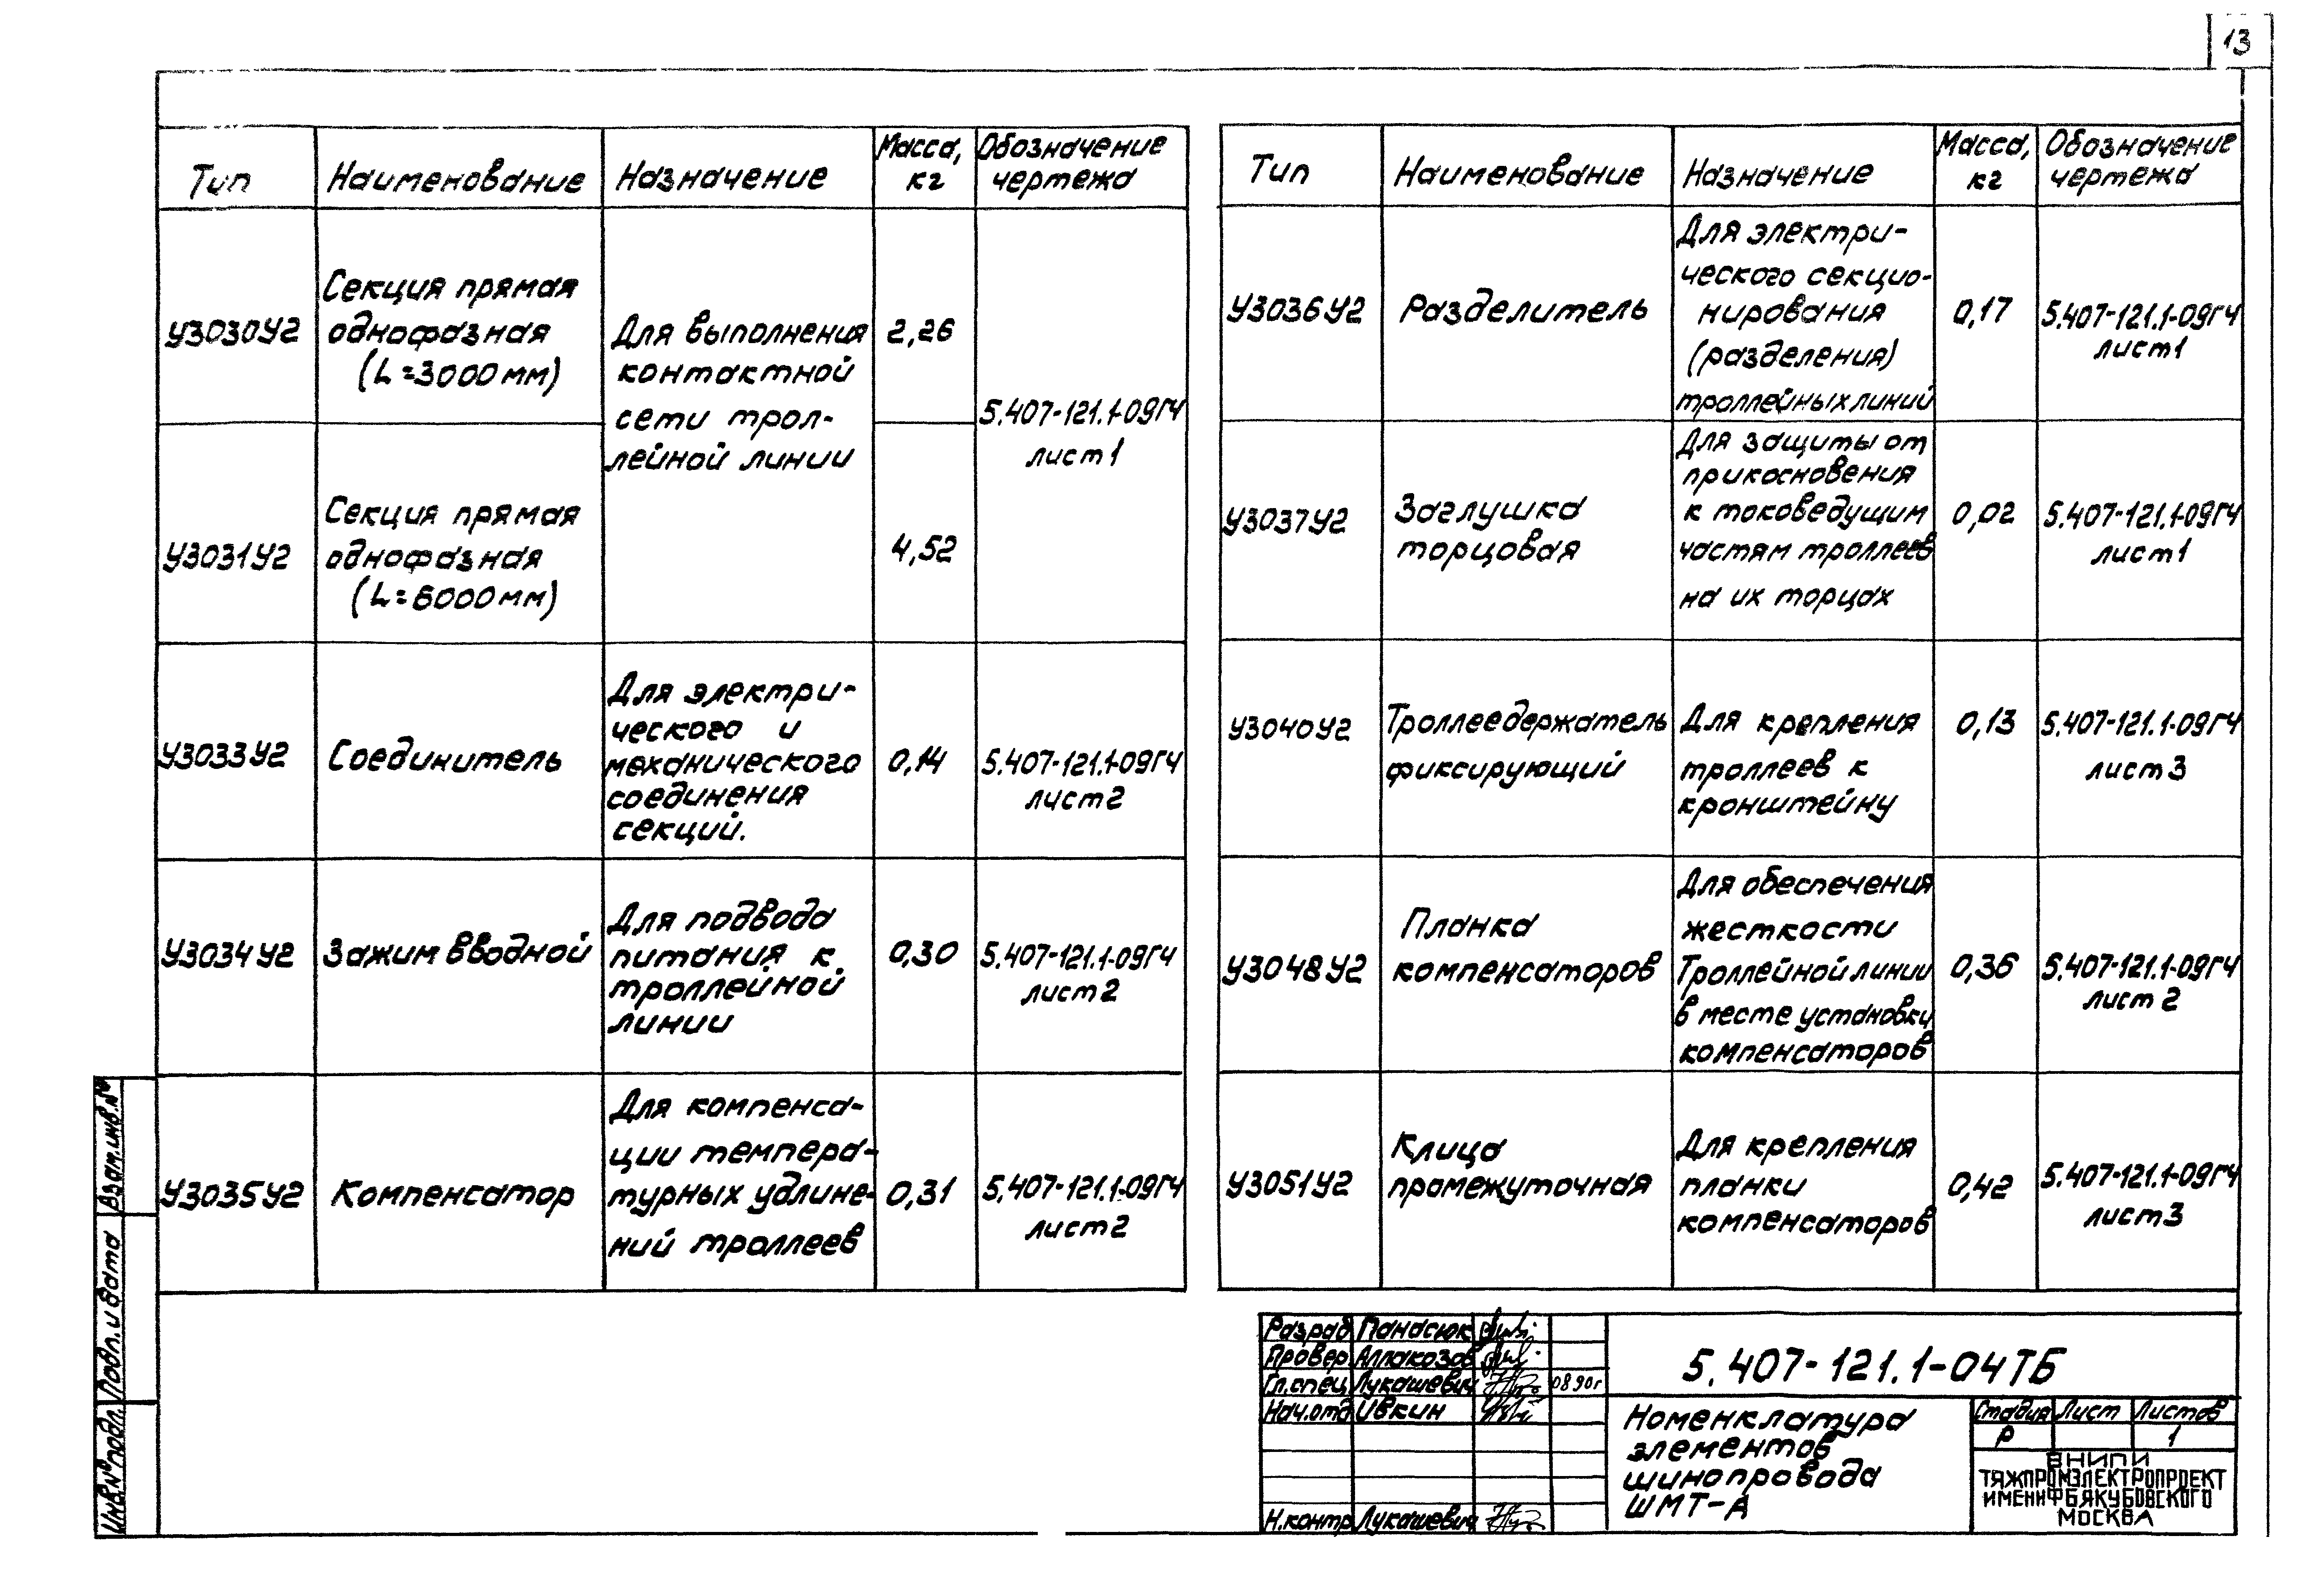 13
Тип
Наименование
Назначение
Масса,
кг
Обозначение
чертежа
У3030У2
Секция прямая
однофазная
(L=3000мм)
Для выполнения
контактной
сети трол-
лейной линии
2,26
5.407-121.1-09ГЧ
лист1
У3031У2
Секция прямая
однофазная
(L=6000мм)
4,52
У3033У2
Соединитель
Для электри-
ческого и
механического
соединения
секций.
0,14
5.407-121.1-09ГЧ
лист2
У3034У2
Зажим вводной
Для подвода
питания к
троллейной
линии
0,30
5.407-121.1-09ГЧ
лист2
У3035У2
Компенсатор
Для компенса-
ции темпера-
турных удлине-
ний троллеев
0,31
5.407-121.1-09ГЧ
лист2
Тип
Наименование
Назначение
Масса,
кг
Обозначение
чертежа
У3036У2
Разделитель
Для электри-
ческого секцио-
нирования
(разделения)
троллейных линий
0,17
5.407-121.1-09ГЧ
лист1
У3037У2
Заглушка
торцовая
Для защиты от
прикосновения
к токоведущим
частям троллеев
на их торцах
0,02
5.407-121.1-09ГЧ
лист1
У3040У2
Троллеедержатель
фиксирующий
Для крепления
троллеев к
кронштейну
0,13
5.407-121.1-09ГЧ
лист3
У3048У2
Планка
компенсаторов
Для обеспечения
жесткости
Троллейной линии
в месте установки
компенсаторов
0,36
5.407-121.1-09ГЧ
лист 2
У3051У2
Клица
промежуточная
Для крепления
планки
компенсаторов
0,42
5.407-121.1-09ГЧ
лист3
Взам.инв.№
Подп. и дата
Инв.№подл.
Разраб Панасюк
Провер. Аллакозов
Гл.спец Лукашевич 08.90г
Нач.отд Ивкин
Н.контр Лукашевич
5.407-121.1-04ТБ
Номенклатура
элементов
шинопровода
ШМТ-А
Стадия Лист Листов
Р 1
ВНИПИ
ТЯЖПРОМЭЛЕКТРОПРОЕКТ
ИМЕНИ Ф.Б.ЯКУБОВСКОГО
МОСКВА